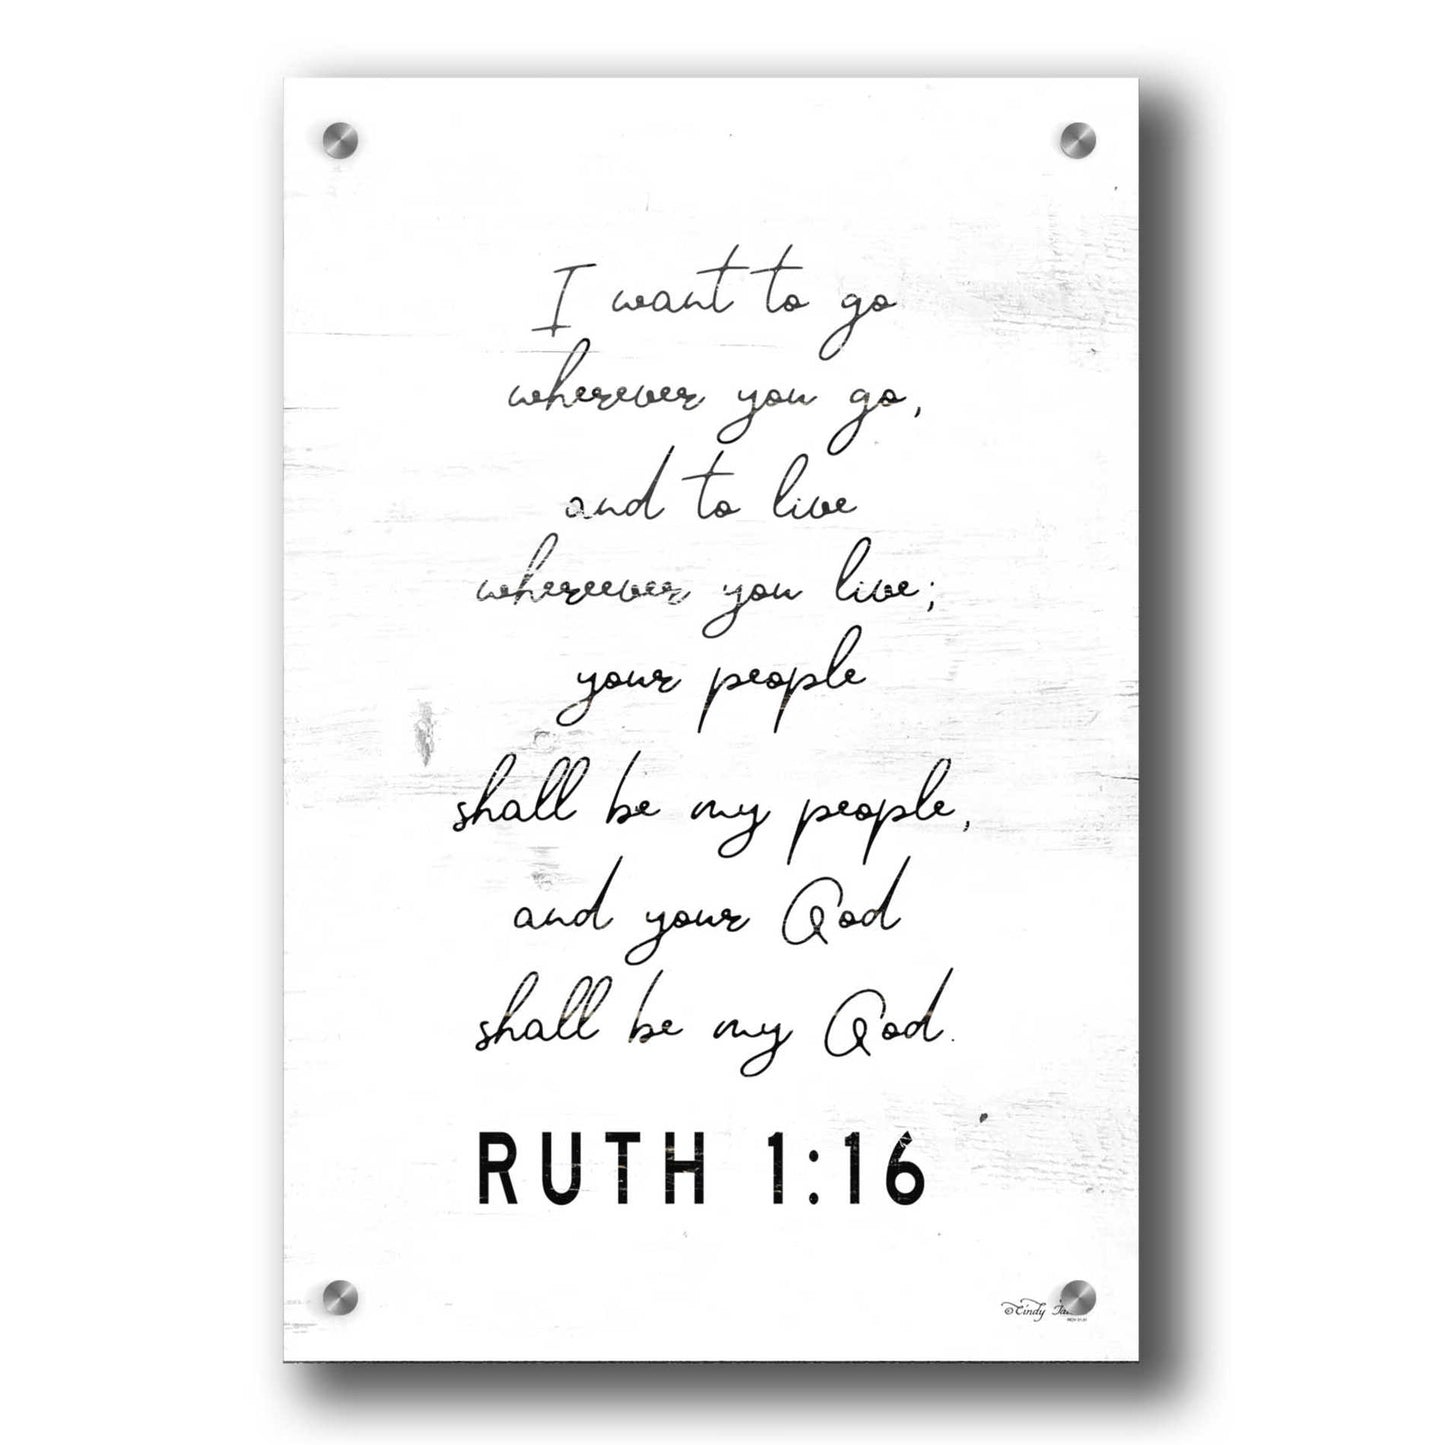 I want to go
wherever you go,
and to live
whereever you live;
your people
shall be my people,
and your God
shall be my God.
RUTH 1:16
©Cindy